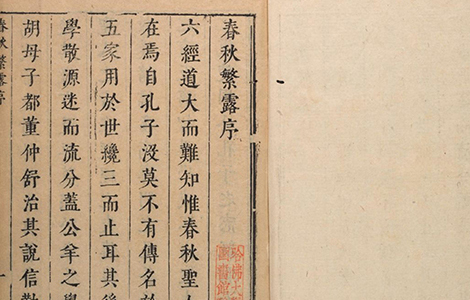 春秋繁露序
六經道大而難知惟春秋聖人
在焉自孔子沒莫不有傳名於
五家用於世纔三而止耳其後
學散源迷而流分蓋公羊之學
胡母子都董仲舒治其說信勤
春秋繁露序
哈佛大
圖書館